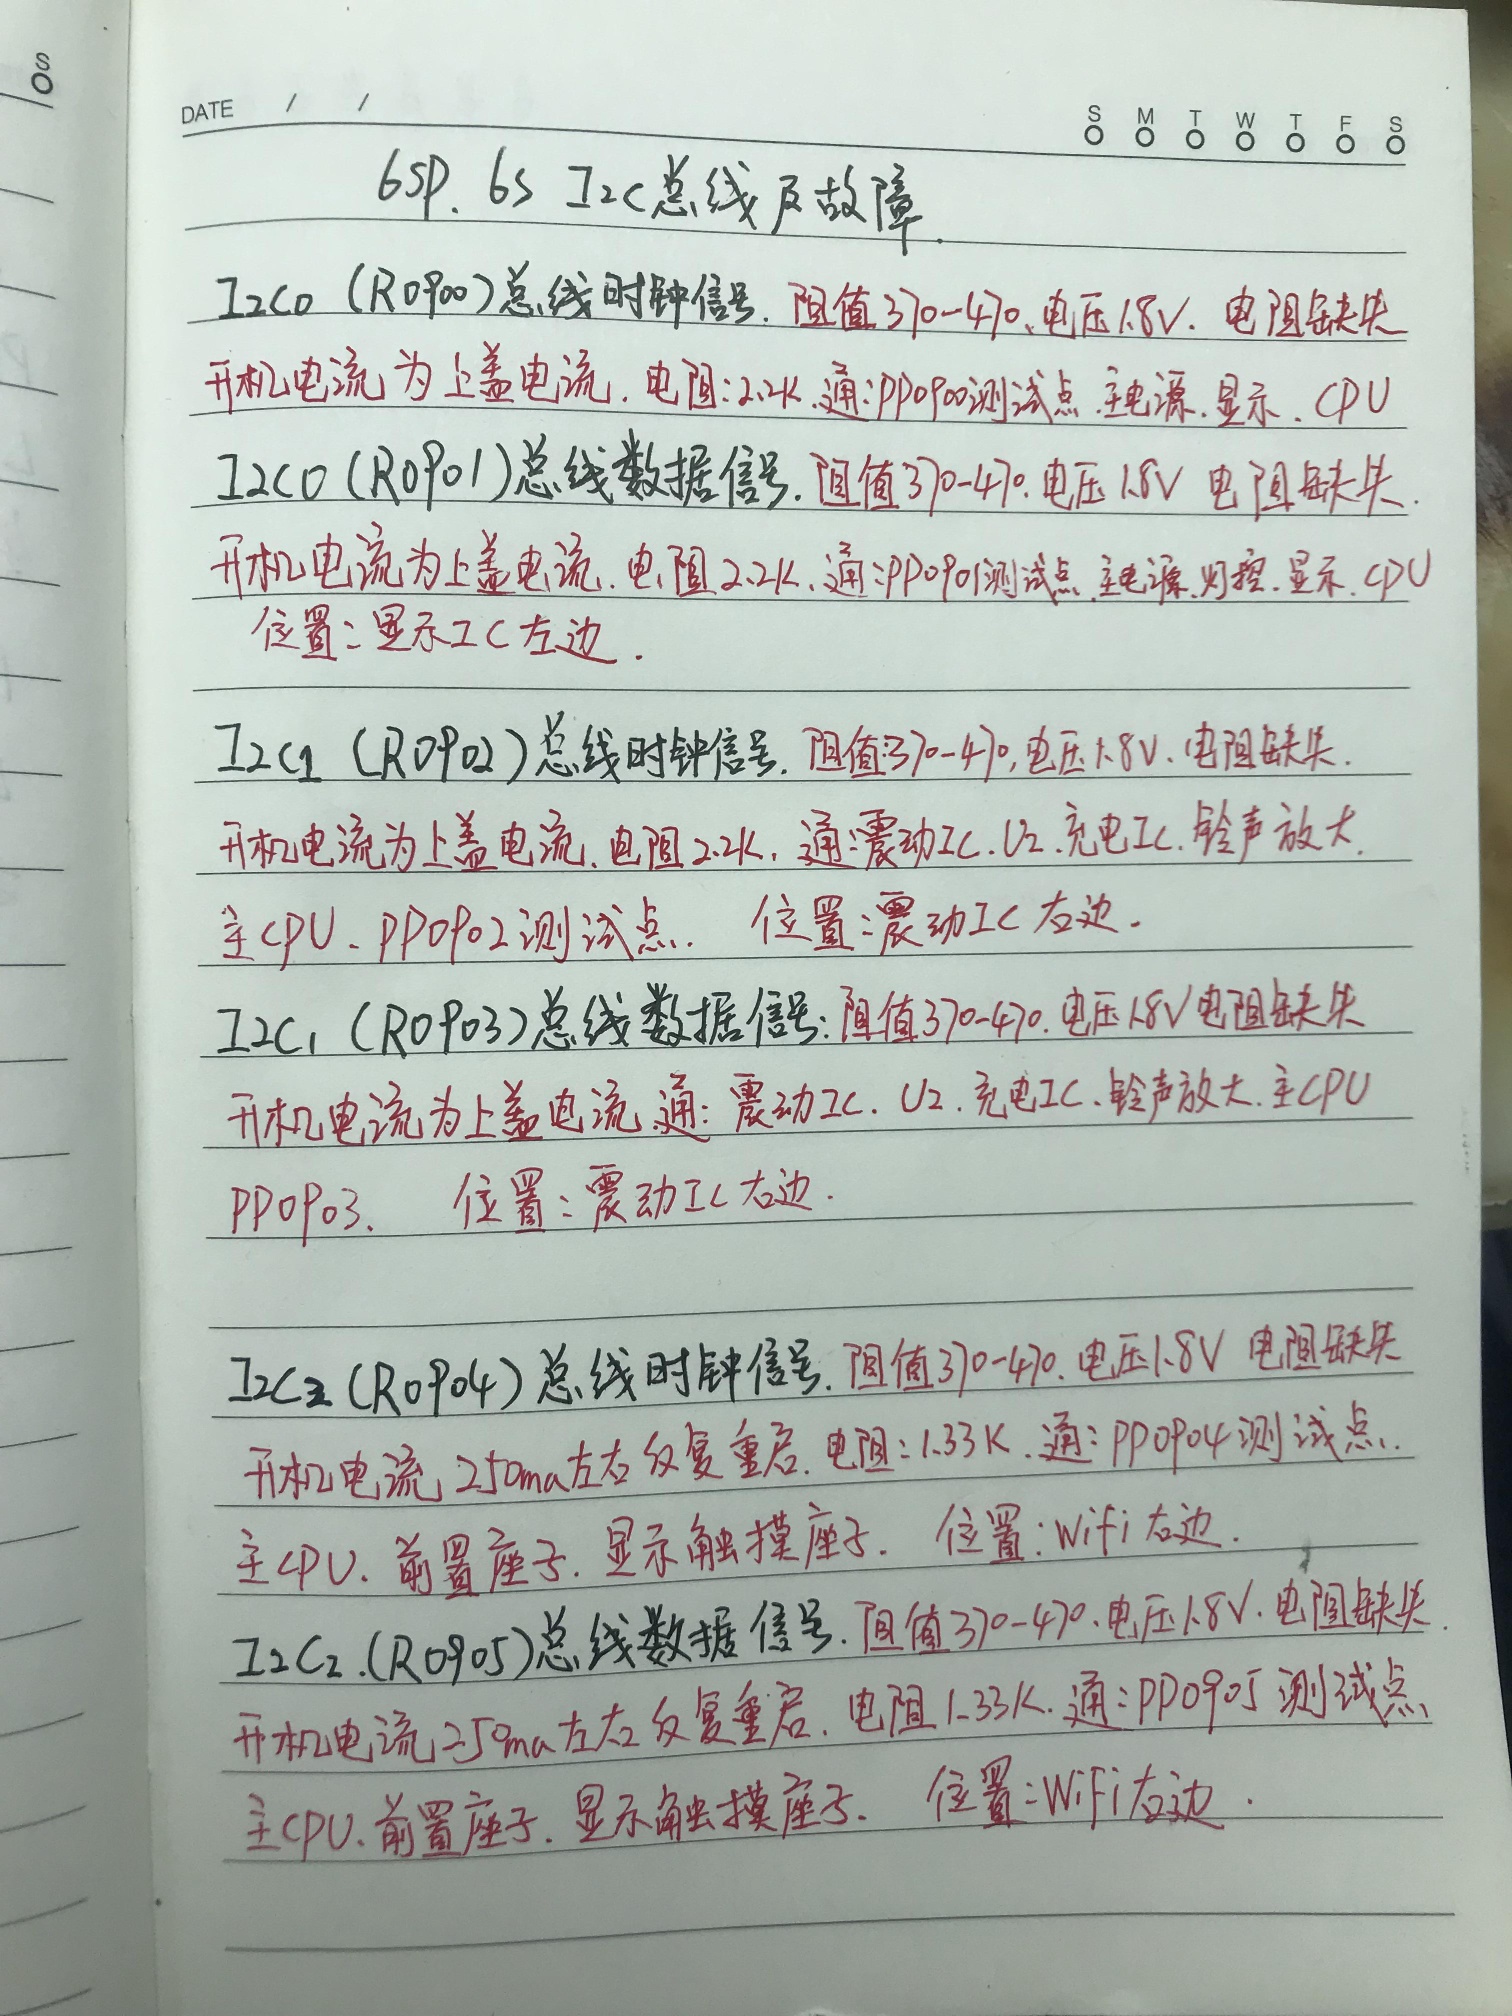 S
DATE / /
S M T W T F S
6SP. 6S I2C总线及故障.
I2C0 (R0900)总线时钟信号. 阻值370-470、电压1.8V. 电阻缺失
开机电流为上盖电流. 电阻:2.2K.通:PP0900测试点.主电源.显示.CPU
I2C0 (R0901)总线数据信号. 阻值370-470.电压1.8V 电阻缺失.
开机电流为上盖电流.电阻2.2K.通:PP0901测试点.主电源.灯控.显示.CPU
位置:显示IC左边.
I2C1 (R0902)总线时钟信号. 阻值:370-470,电压1.8V.电阻缺失.
开机电流为上盖电流.电阻2.2K, 通:震动IC.U2.充电IC.铃声放大.
主CPU、PP0902测试点. 位置:震动IC右边.
I2C1 (R0903)总线数据信号:阻值370-470.电压1.8V电阻缺失
开机电流为上盖电流.通:震动IC.U2.充电IC.铃声放大.主CPU
PP0903. 位置:震动IC右边.
I2C2(R0904)总线时钟信号.阻值370-470.电压1.8V 电阻缺失
开机电流250ma左右反复重启.电阻:1.33K.通:PP0904测试点.
主CPU.前置座子.显示触摸座子. 位置:Wifi右边.
I2C2.(R0905)总线数据信号.阻值370-470.电压1.8V.电阻缺失.
开机电流250ma左右反复重启.电阻1.33K.通:PP0905测试点
主CPU.前置座子.显示触摸座子. 位置:WiFi右边.